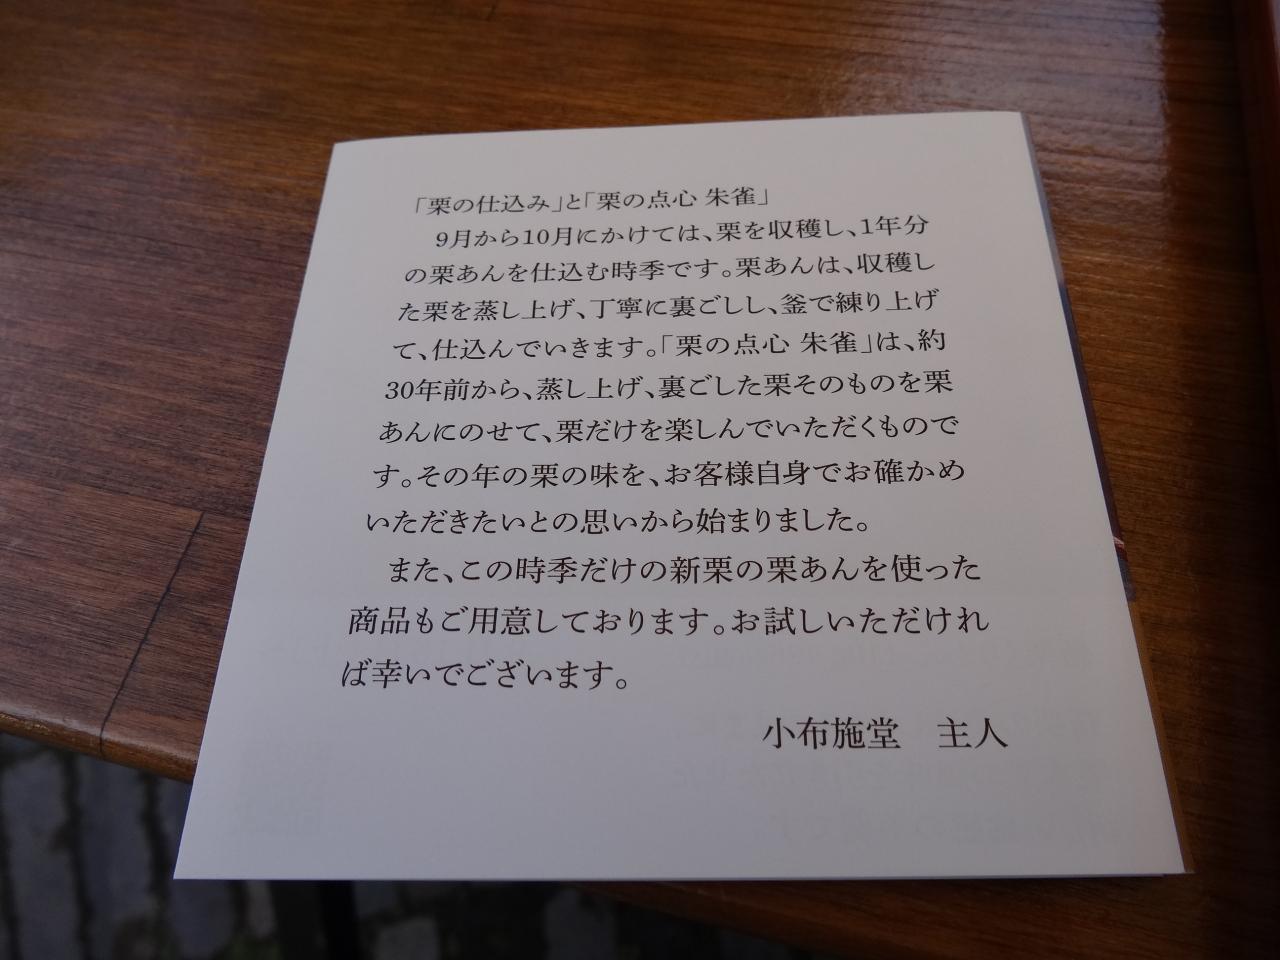 「栗の仕込み」と「栗の点心 朱雀」
9月から10月にかけては、栗を収穫し、1年分
の栗あんを仕込む時季です。栗あんは、収穫し
た栗を蒸し上げ、丁寧に裏ごしし、釜で練り上げ
て、仕込んでいきます。「栗の点心 朱雀」は、約
30年前から、蒸し上げ、裏ごした栗そのものを栗
あんにのせて、栗だけを楽しんでいただくもので
す。その年の栗の味を、お客様自身でお確かめ
いただきたいとの思いから始まりました。
また、この時季だけの新栗の栗あんを使った
商品もご用意しております。お試しいただけれ
ば幸いでございます。
小布施堂　主人